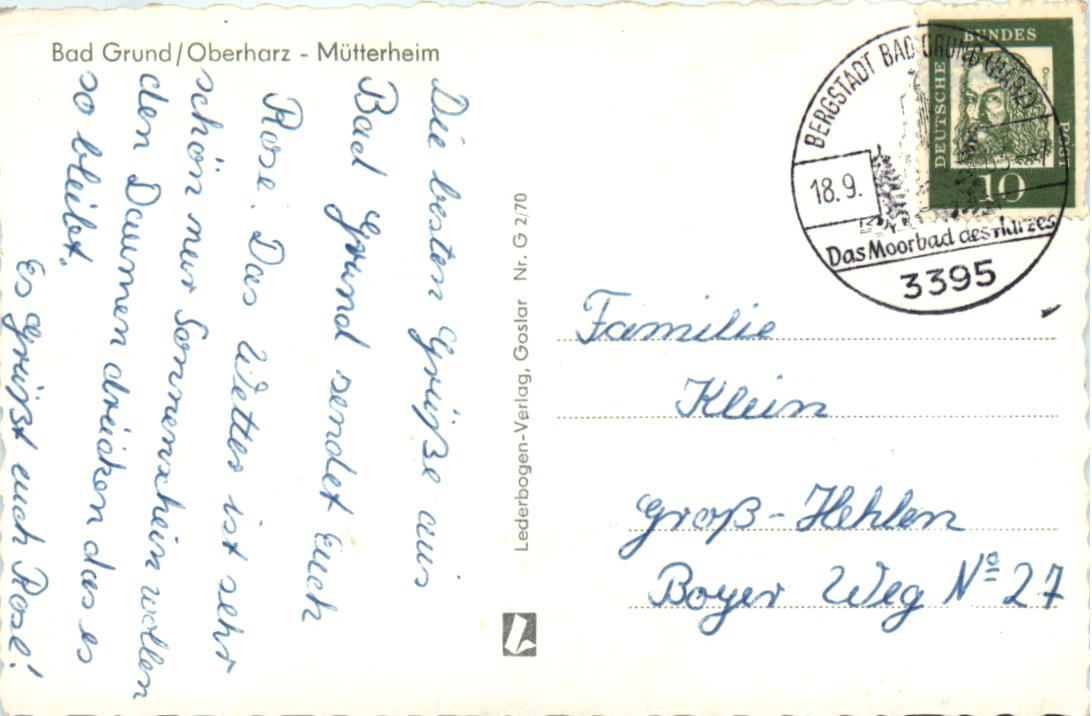 Bad Grund/Oberharz - Mütterheim
Die besten Grüße aus
Bad Grund sendet Euch
Rose. Das Wetter ist sehr
schön nur Sonnenschein wollen
den Daumen drücken das es
so bleibt.
Es grüßt euch Rose!
Lederbogen-Verlag, Goslar Nr. G 2/70
BERGSTADT BAD GRUND (HARZ)
18.9.
Das Moorbad des Harzes
3395
DEUTSCHE
BUNDES
POST
10
Familie
Klein
Groß-Hehlen
Boyer Weg Nº 27